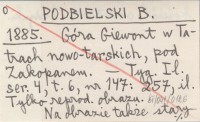 PODBIELSKI B.
1885. Góra Giewont w Ta-
trach nowo-tarskich, pod
Zakopanem. — Tyg. Il.
ser. 4, t. 6, nr 147: 257, il.
Tylko reprod. obrazu.
Na obrazie także stary